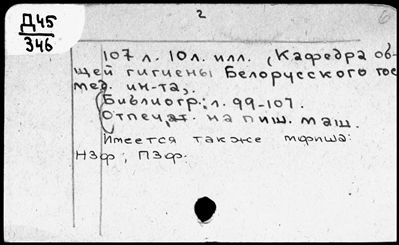 Д45
346
2
6
107 л. 10 л. илл. (Кафедра об-
щей гигиены Белорусского гос
мед. ин-та).
Библиогр.: л. 99-107.
Отпечат. на пиш. маш.
Имеется также мфиша:
НЗф, ПЗф.